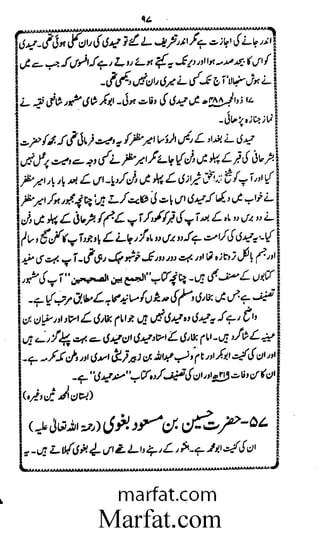 ۹۷
اندر جانے کی اجازت ہے مگر اندر تشریف لے گئے تو حمیدی کی ران کھلی ہوئی تھی۔ حمیدی
کو اس کا بیحد صدمہ ہوا اور دیر تک یہ کہتے ہوئے روتے رہے کہ افسوس کہ جب سے میں
نے ہوش سنبھالا آج تک کسی نے میری ران نہیں دیکھی تھی۔
۱۷ ذوالحجہ ۴۸۸ھ میں حمیدی کی وفات ہوئی۔ ابوبکر شامی مشہور شافعی فقیہ نے
نماز جنازہ پڑھائی۔
حمیدی نے بغداد کے رئیس الرؤسا امیر مظفر کو یہ وصیت فرمائی تھی کہ مجھ کو حضرت
بشر حافی کی قبر کے پہلو میں دفن کیا جائے مگر امیر مظفر نے کسی وجہ سے وصیت پر عمل نہیں
کیا اور آپ کو شیخ ابو اسحٰق شیرازی کے پہلو میں دفن کر دیا۔ اس کے بعد بار بار امیر مظفر
نے خواب میں دیکھا کہ حمیدی اس بات کی شکایت کر رہے ہیں چنانچہ مجبور ہو کر امیر مظفر
نے دو برس دو ماہ کے بعد آپ کی قبر کو کھود کر آپ کے جسم کو بشر حافی کے پہلو میں دفن
کیا۔ یہ حمیدی کی کرامت ہے کہ دو برس دو ماہ گزر جانے کے باوجود آپ کا کفن صحیح و سالم
اور جسم بالکل تر و تازہ تھا اور بہت دور دور تک خوشبو مہک رہی تھی۔ آپ بہت سی مفید
کتابوں کے مصنف بھی ہیں۔ چنانچہ کتاب "الجمع بین الصحیحین" آپ کی مشہور
تصنیف ہے جس میں بخاری و مسلم کی حدیثوں کو مسانید صحابہ کے مطابق مرتب کیا ہے۔
واضح رہے کہ یہ حمیدی وہ حمیدی نہیں ہیں جو امام بخاری کے استاد اور سفیان بن
عیینہ کے شاگرد ہیں۔ امام بخاری کے استاد حمیدی ان حمیدی سے بہت پہلے گزرے ہیں
اور ان کی کنیت ابوبکر اور نام و نسب عبداللہ بن زبیر قریشی اسدی اور وطن مکہ مکرمہ ہے۔
ان کا سن وفات ۲۱۹ھ اور ان کی تصنیف کردہ کتاب "مسند حمیدی" ہے۔
(بستان المحدثین وغیرہ)
۵۷۔ حضرت حسین بن مسعود بغوی (رحمۃ اللہ تعالیٰ علیہ)
ان کی کنیت ابو محمد ہے۔ بغشور کے رہنے والے تھے اس لیے بغوی کہلاتے ہیں۔ یہ
marfat.com
Marfat.com